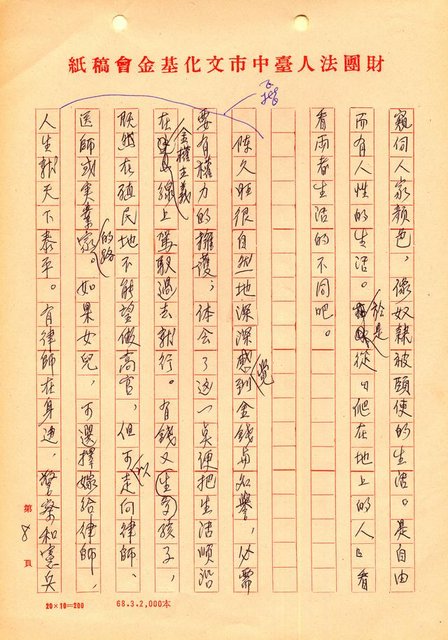 財團法人臺中市文化基金會稿紙
窺伺人家顏色，像奴隸被頤使的生活。是自由
而有人性的生活。於是從「爬在地上的人」看
看兩者生活的不同吧。
陳久旺很自然地深深感覺到金錢與名譽，必需
要有權力的擁護，体会了这一点便把生活順沿
在金權主義線上駕馭過去就行。有錢又生了孩子，
既然在殖民地不能望做高官，但可以走向律師、
医師或実業家的路。如果女兒，可選擇嫁給律師，
人生就天下泰平。有律師在身边，警察和憲兵
第8頁
20×10=200
68.3.2,000本